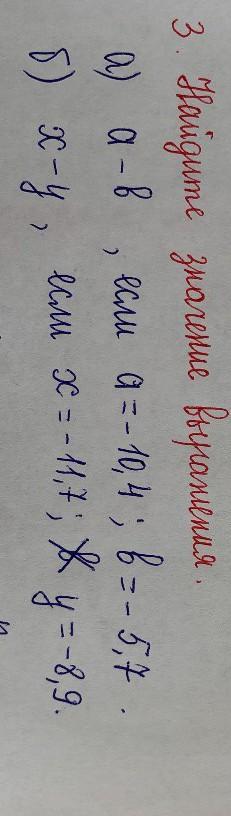 3. Найдите значение выражения.
а) а - в, если а = -10,4; в = -5,7.
б) х - у, если х = -11,7; у = -8,9.